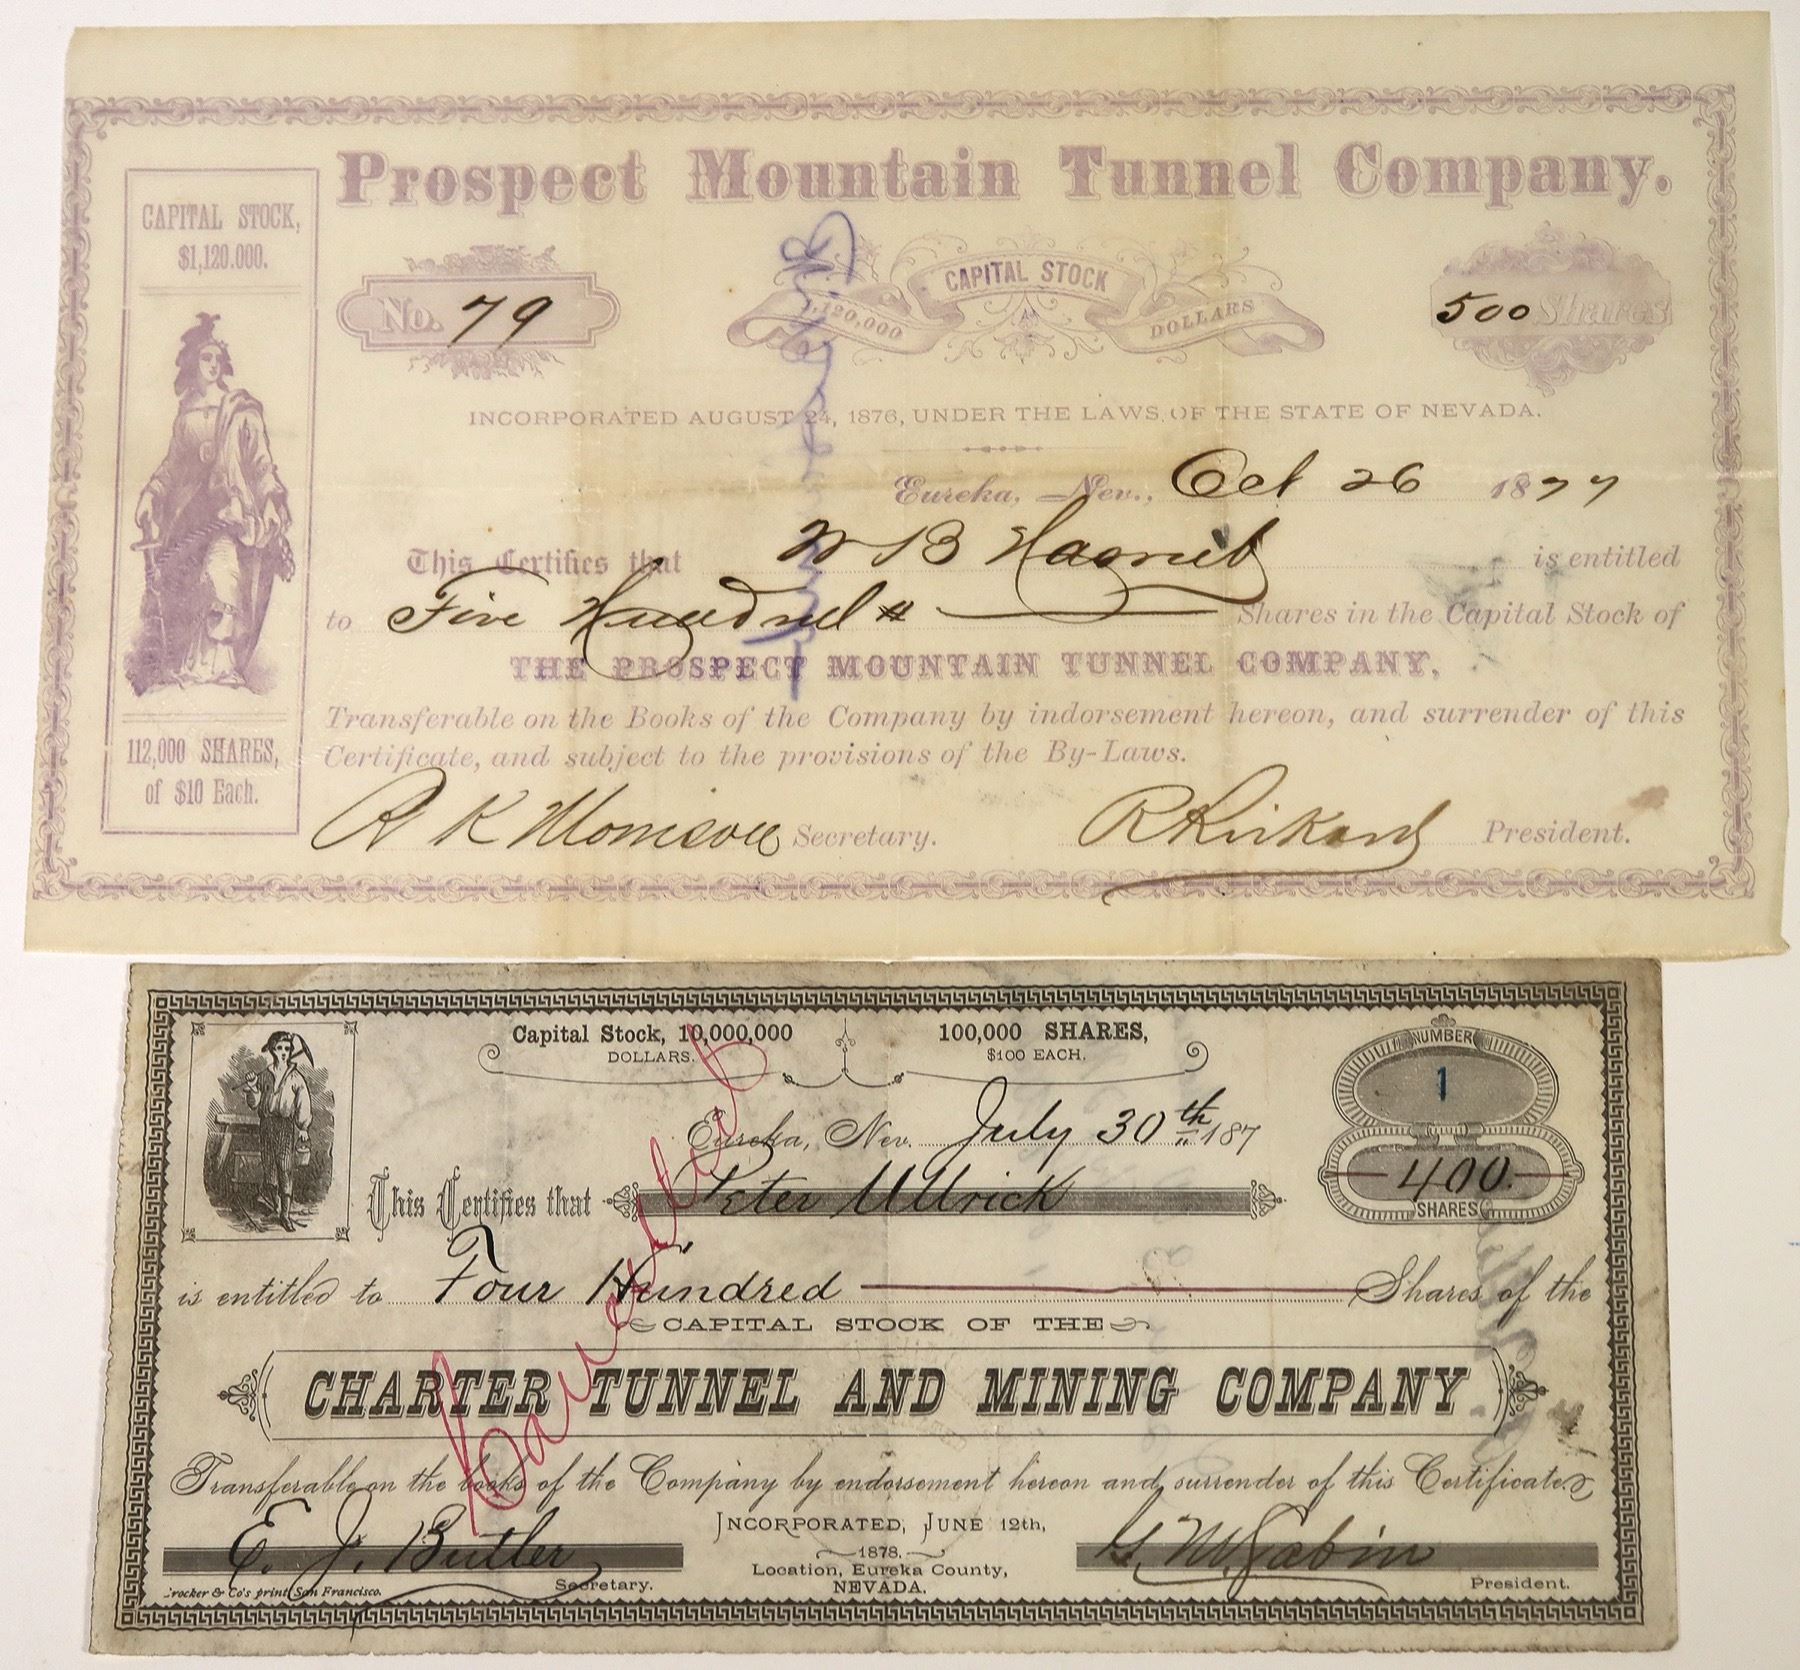 Prospect Mountain Tunnel Company.
CAPITAL STOCK,
$1,120.000.
No. 79
CAPITAL STOCK
1,120,000 DOLLARS
500 Shares
INCORPORATED AUGUST 24, 1876, UNDER THE LAWS OF THE STATE OF NEVADA.
Eureka, Nev., Oct 26 1877
This Certifies that W B is entitled
to Five Hundred Shares in the Capital Stock of
THE PROSPECT MOUNTAIN TUNNEL COMPANY,
Transferable on the Books of the Company by indorsement hereon, and surrender of this
Certificate, and subject to the provisions of the By-Laws.
112,000 SHARES,
of $10 Each.
R K Morrison Secretary.
R Rickard President.
Capital Stock, 10,000,000
DOLLARS.
100,000 SHARES,
$100 EACH.
NUMBER
1
400.
SHARES
Eureka, Nev. July 30th 187
This Certifies that Peter Ullrick
is entitled to Four Hundred Shares of the
CAPITAL STOCK OF THE
CHARTER TUNNEL AND MINING COMPANY
Transferable on the books of the Company by endorsement hereon and surrender of this Certificate.
Cancelled
E. J. Butler
Secretary.
INCORPORATED, JUNE 12th,
1878.
Location, Eureka County,
NEVADA.
G. W. Sabin
President.
rocker & Co's print San Francisco.